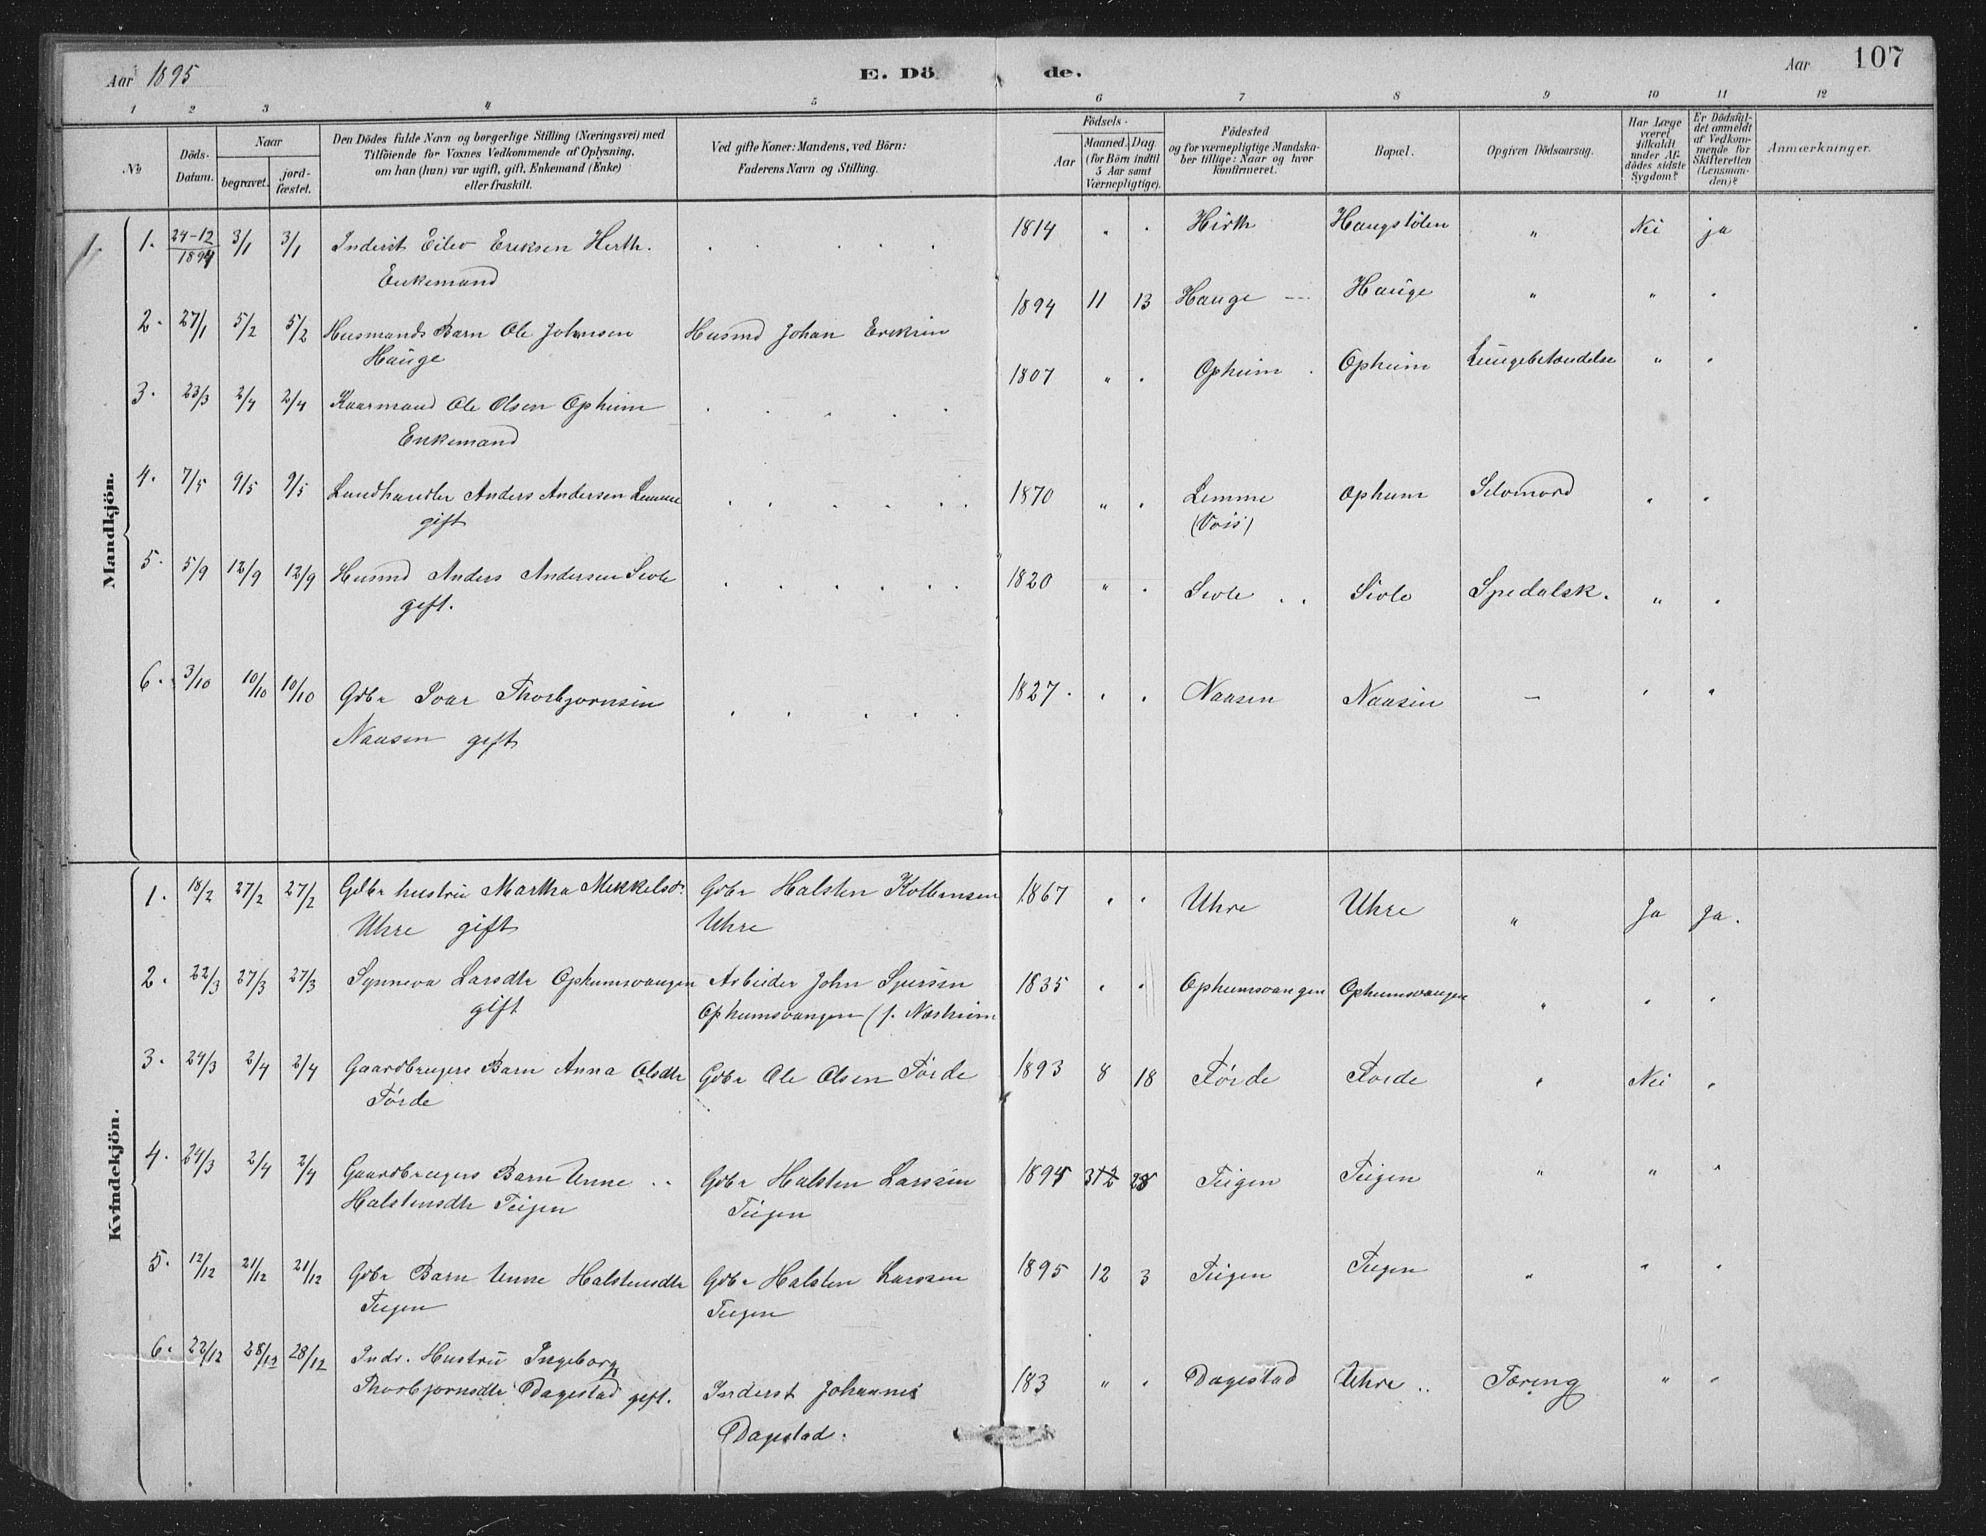 Aar 1895 E. Dö de. Aar 107
1 2 3 4 5 6 7 8 9 10 11 12
No Döds-Datum. Naar begravet. jordfæstet. Den Dödes fulde Navn og borgerlige Stilling (Næringsvei) med Tilföiende for Voxnes Vedkommende af Oplysning, om han (hun) var ugift, gift, Enkemand (Enke) eller fraskilt. Ved gifte Koner: Mandens, ved Börn: Faderens Navn og Stilling. Födsels- Aar Maaned. Dag. (for Börn indtil 5 Aar samt Værnepligtige). Födested og for værnepligtige Mandskaber tillige: Naar og hvor konfirmeret. Bopæl. Opgiven Dödsaarsag. Har Læge været tilkaldt under Afdödes sidste Sygdom? Er Dödsfaldet anmeldt af Vedkommende for Skifteretten (Lensmanden)? Anmærkninger.
Mandkjön.
1. 24-12 1894 3/1 3/1 Inderst Eilev Eriksen Herth. 1814 " " Hirth Haugstölen " Nei ja
Enkemand
2. 27/1 5/2 5/2 Husmands Barn Ole Johnsen Husmd Johan Eriksen 1894 11 13 Hauge Hauge " " "
Hauge
3. 23/3 2/4 2/4 Kaarmand Ole Olsen Opheim 1807 " " Opheim Opheim Lungebetændelse " "
Enkemand
4. 7/5 9/5 9/5 Landhandler Anders Andersen Lemme 1870 " " Lemme Ophum Selvmord " "
gift (Voss)
5. 5/9 12/9 12/9 Husmd Anders Andersen Sivle 1820 " " Sivle Sivle Spedalsk. " "
gift.
6. 3/10 10/10 10/10 Gdbr Ivar Thorbjørnsen 1827 " " Naasen Naasen — " "
Naasen gift
Kvindekjön.
1. 18/2 27/2 27/2 Gdbr hustru Martha Mikkelsdr. Gdbr Halsten Kolbensen 1867 " " Uhre Uhre " Ja Ja.
Uhre gift Uhre
2. 22/3 27/3 27/3 Synneva Larsdtr Ophumsvangen Arbeider John Sjursen 1835 " " Ophumsvangen Ophumsvangen " " "
gift Ophumsvangen (f. Næsheim
3. 24/3 2/4 2/4 Gaardbrugers Barn Anna Olsdtr Gdbr Ole Olsen Förde 1893 8 18 Förde Förde " Nei "
Förde
4. 24/3 2/4 2/4 Gaardbrugers Barn Unne Gdbr Halsten Larssen 1895 Teigen Teigen " " "
Halstensdtr Teigen Teigen
5. 12/12 21/12 21/12 Gdbr Barn Unne Halstensdtr Gdbr Halsten Larssen 1895 12 3 Teigen Teigen " " "
Teigen Teigen
6. 22/12 28/12 28/12 Indr. Hustru Ingeborg
Thorbjørnsdtr Dagestad gift. Inderst Johannes 183 " " Dagestad Uhre Tæring " "
Dagestad.